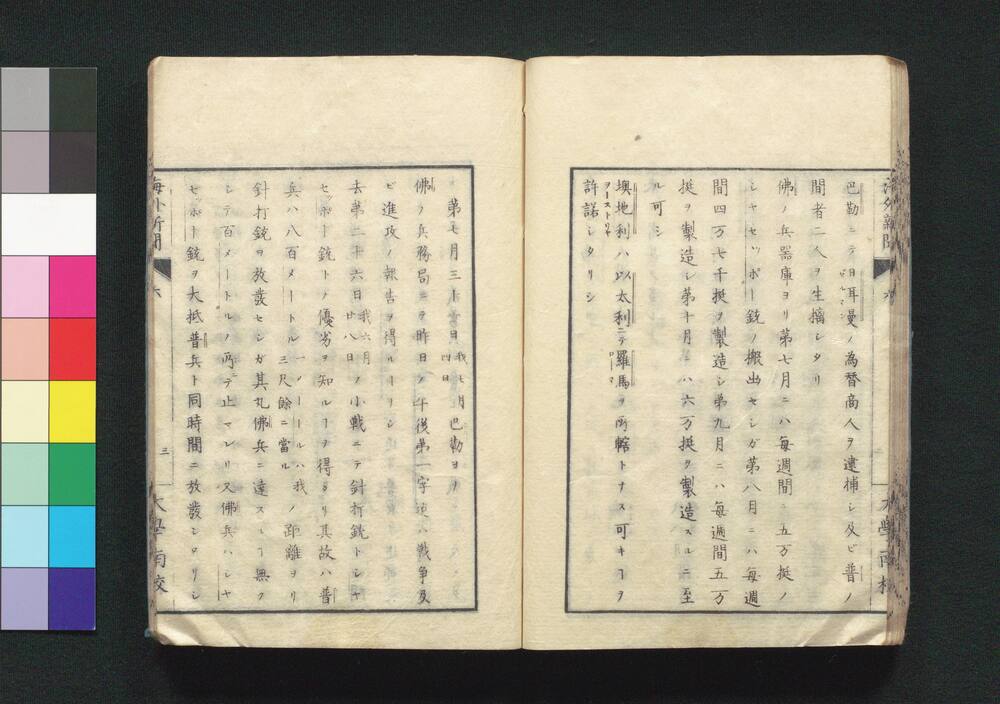 巴勒ニテ日耳曼ノ為替商人ヲ逮捕シ及ビ普ノ
間者二人ヲ生擒シタリ
佛ノ兵器庫ヨリ第七月ニハ毎週間ニ五万挺ノ
シヤセッポー銃ノ搬出セシガ第八月ニハ毎週
間四万七千挺ヲ製造シ第九月ニハ毎週間五万
挺ヲ製造シ第十月ニハ六万挺ヲ製造スルニ至
ル可シ
墺地利ハ以太利ニテ羅馬ヲ所轄トナス可キヿヲ
オーストリヤ
ローマ
許諾シタリシ
第七月三十日
我七月
四日
巴勒ヨリ
佛ノ兵務局ニテ昨日ノ午後第一字迠ハ戦争及
ビ進攻ノ報告ヲ得ルヿナシ
去第二十六日
我六月
廿八日
ノ小戦ニテ針打銃トシヤ
セッポー銃トノ優劣ヲ知ルヿヲ得タリ其故ハ普
兵ハ八百メートル
一メートルハ我
三尺餘ニ當ル
ノ距離ヨリ
針打銃ヲ放發セシガ其丸佛兵ニ達スルヿ無ク
シテ百メートルノ所デ止マレリ又佛兵ハシヤ
セッポー銃ヲ大抵普兵ト同時間ニ放發シタリシ
海外新聞
六
三
大學南校